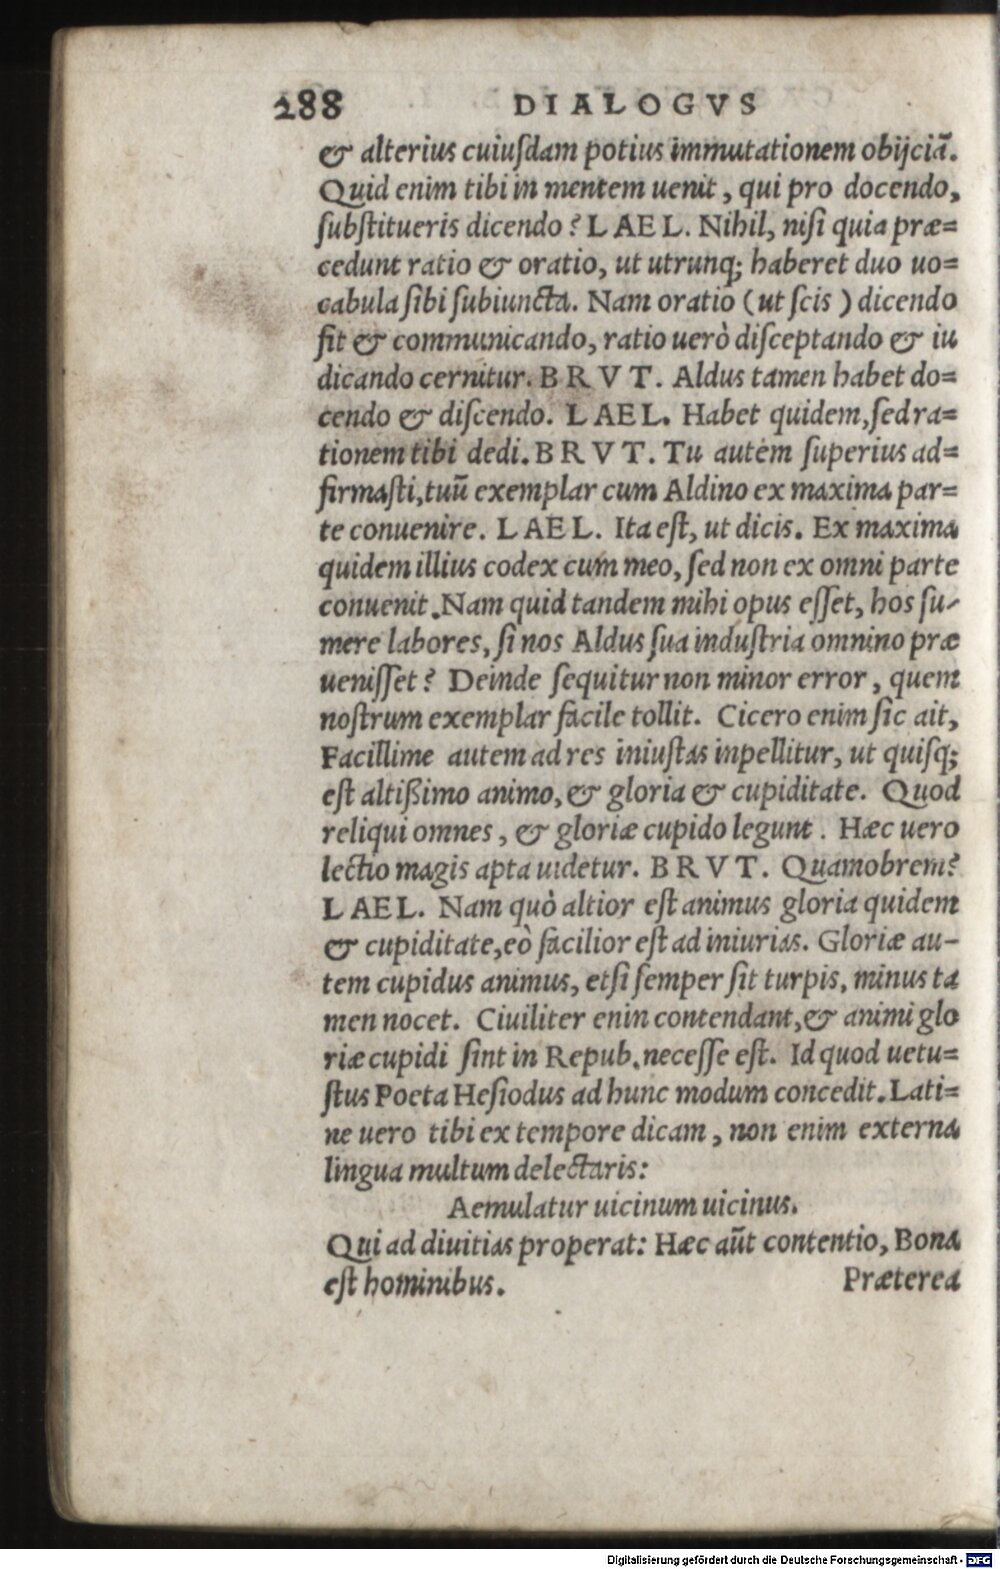 288 DIALOGVS
& alterius cuiuſdam potius immutationem obijciã.
Quid enim tibi in mentem uenit, qui pro docendo,
ſubſtitueris dicendo? LAEL. Nihil, niſi quia præ=
cedunt ratio & oratio, ut utrunq; haberet duo uo=
cabula ſibi ſubiuncta. Nam oratio (ut ſcis) dicendo
fit & communicando, ratio uerò diſceptando & iu
dicando cernitur. BRVT. Aldus tamen habet do=
cendo & diſcendo. LAEL. Habet quidem, ſed ra=
tionem tibi dedi. BRVT. Tu autem ſuperius ad=
firmaſti, tuũ exemplar cum Aldino ex maxima par=
te conuenire. LAEL. Ita eſt, ut dicis. Ex maxima
quidem illius codex cum meo, ſed non ex omni parte
conuenit. Nam quid tandem mihi opus eſſet, hos ſu-
mere labores, ſi nos Aldus ſua induſtria omnino præ
ueniſſet? Deinde ſequitur non minor error, quem
noſtrum exemplar facile tollit. Cicero enim ſic ait,
Facillime autem ad res iniuſtas inpellitur, ut quiſq;
eſt altißimo animo, & gloria & cupiditate. Quod
reliqui omnes, & gloriæ cupido legunt. Hæc uero
lectio magis apta uidetur. BRVT. Quamobrem?
LAEL. Nam quò altior eſt animus gloria quidem
& cupiditate, eò facilior eſt ad iniurias. Gloriæ au-
tem cupidus animus, etſi ſemper ſit turpis, minus ta
men nocet. Ciuiliter enin contendant, & animi glo
riæ cupidi ſint in Repub. neceſſe eſt. Id quod uetu=
ſtus Poeta Heſiodus ad hunc modum concedit. Lati=
ne uero tibi ex tempore dicam, non enim externa
lingua multum delectaris:
Aemulatur uicinum uicinus.
Qui ad diuitias properat: Hæc aũt contentio, Bona
eſt hominibus. Præterea
Digitalisierung gefördert durch die Deutsche Forschungsgemeinschaft - DFG